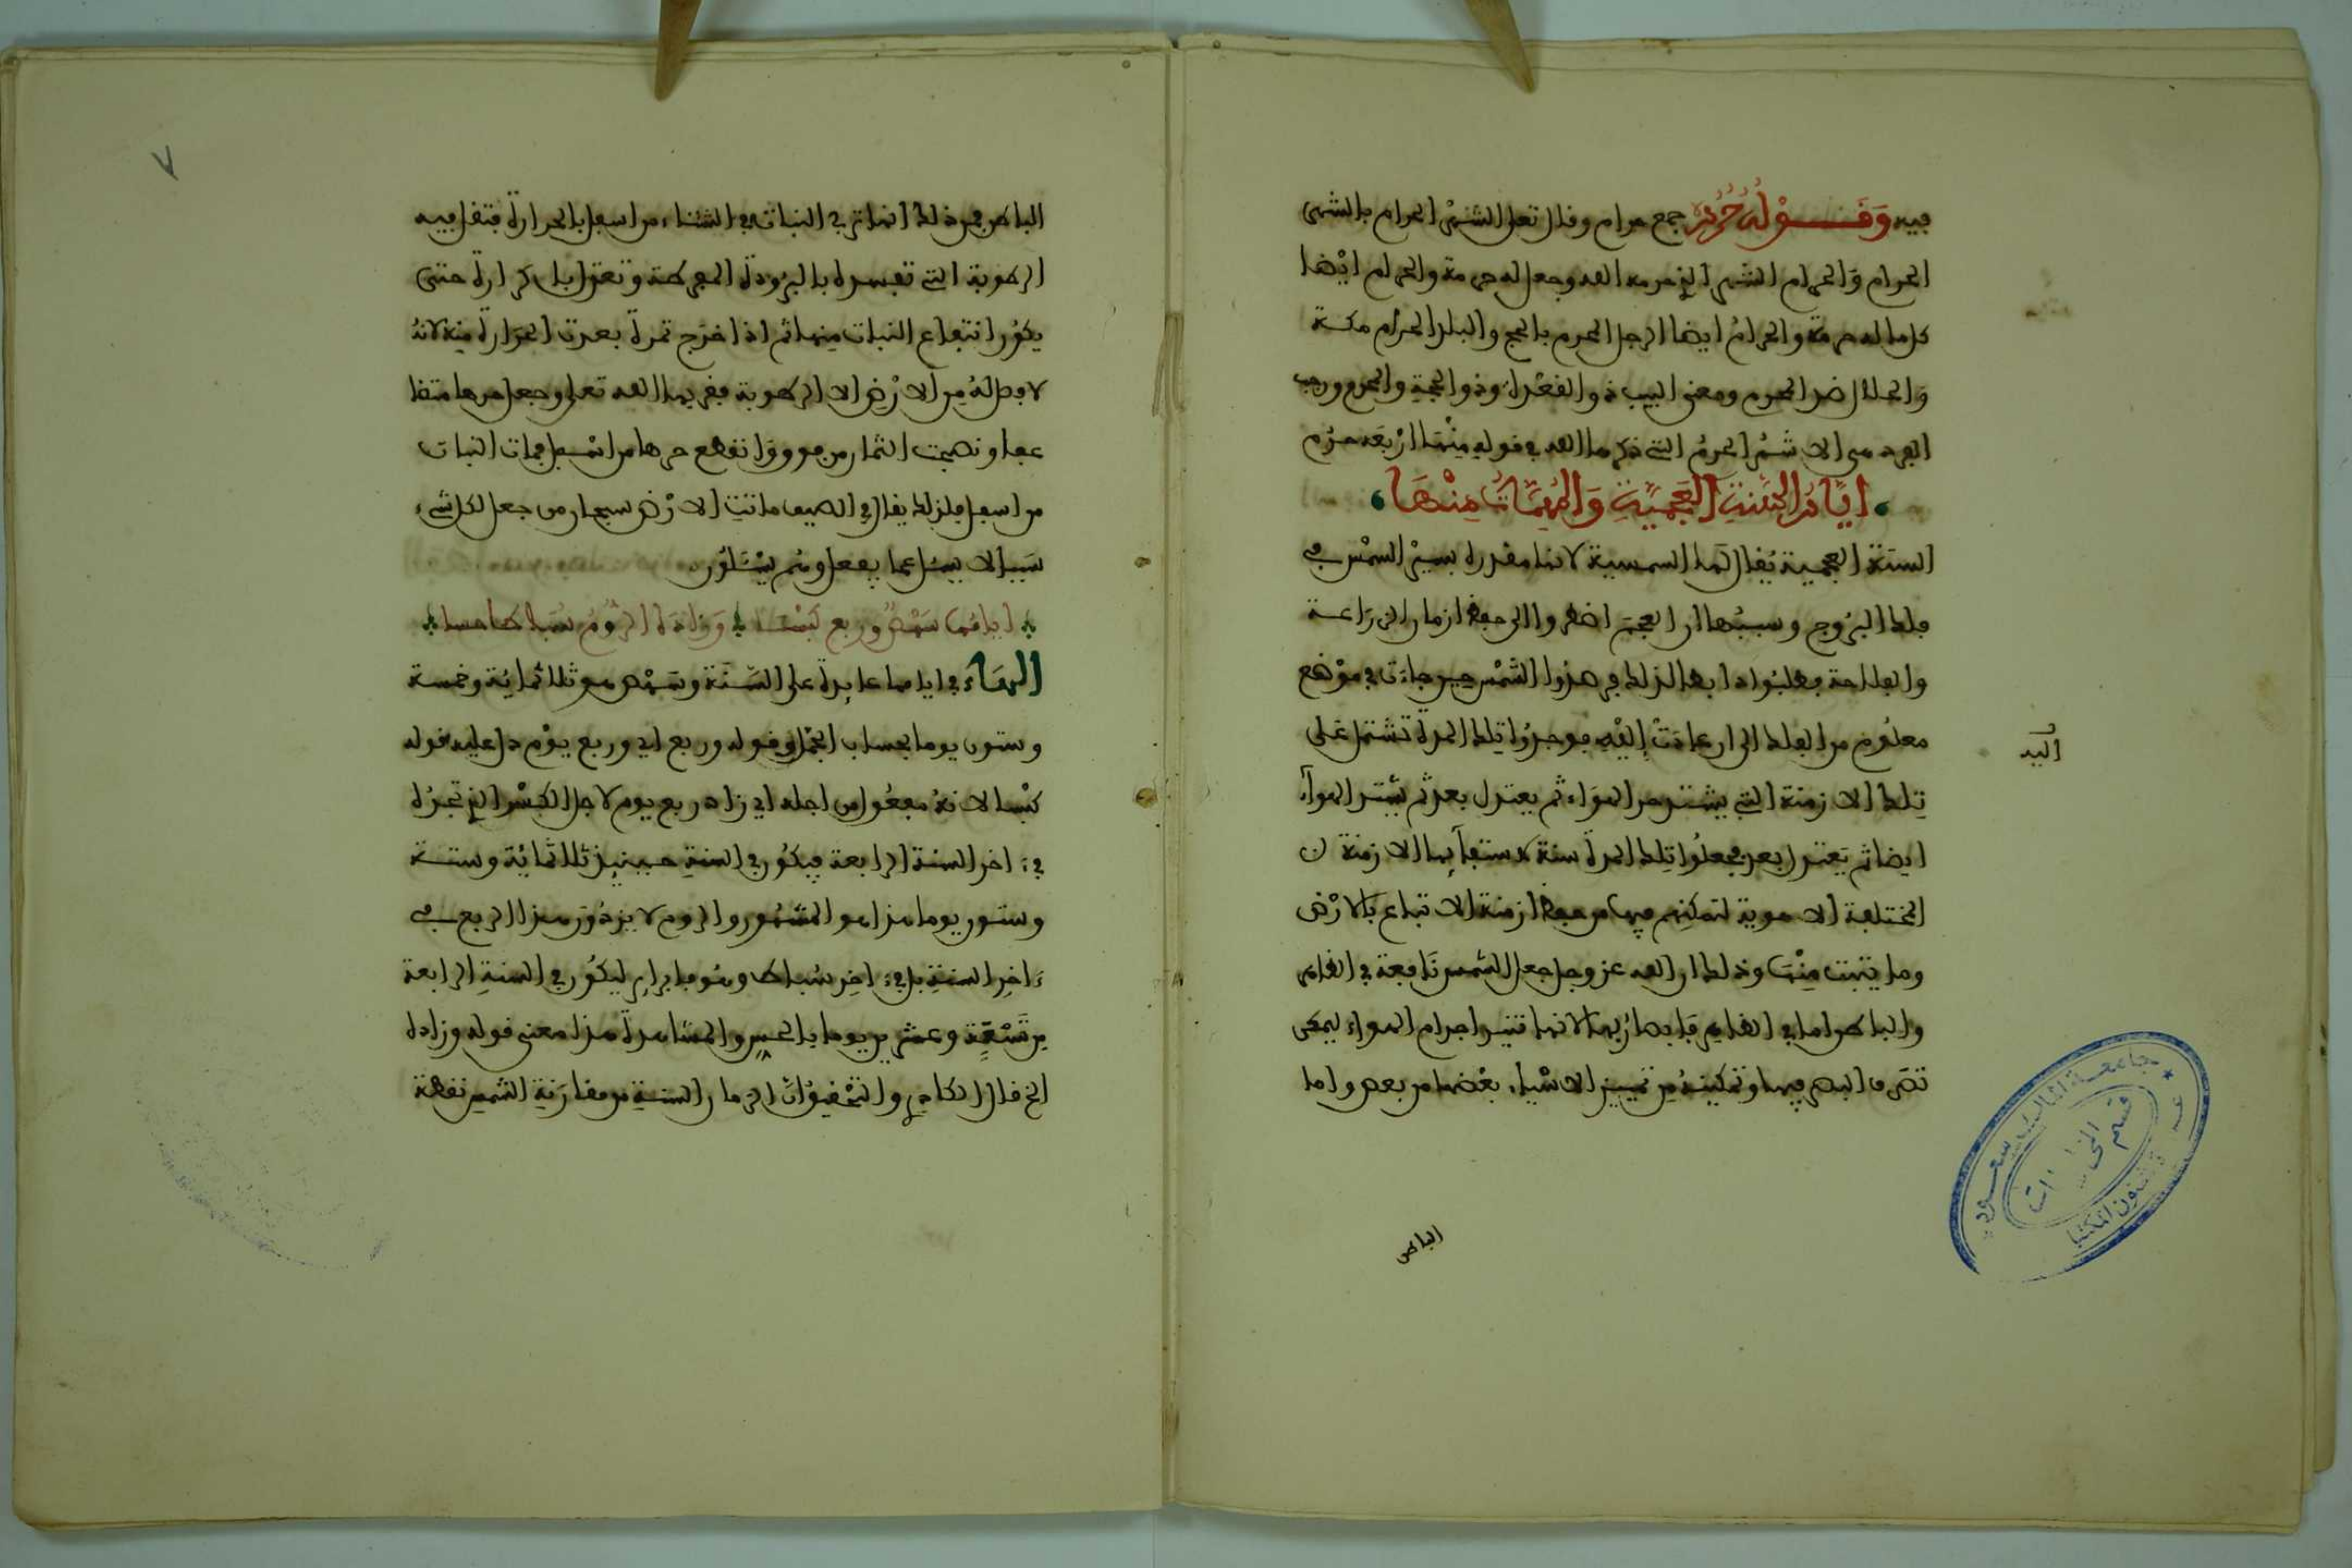 فيه وقوله حرم جمع حرام وقال تعلى الشهر الحرام بالشهر
الحرام والحرام الشهر الذي حرمه الله وجعل له حرمة والحرام ايضا
كل ما له حرمة والحرام ايضا الرجل المحرم بالحج والبلد الحرام مكة
والحلال ضد المحرم ومعنى البيت ذو القعدة وذو الحجة والمحرم ورجب
الفرد هي الاشهر الحرم التي ذكرها الله في قوله منها اربعة حرم
ايام السنة العجمية والمهمات منها
السنة العجمية يقال لها الشمسية لانها مقدرة بسير الشمس في
فلك البروج وسببها ان العجم اضطروا الى حفظ ازمان الزراعة
والفلاحة فطلبوا دابها لذلك فرصدوا الشمس حين جاءت في موضع
معلوم من الفلك الى ان عادت إليه فوجدوا تلك المدة تشتمل على
اليه
تلك الازمنة التي يشتد حر الهواء ثم يعتدل بعد ثم يشتد الهواء
ايضا ثم يعتدل بعد فجعلوا تلك المدة سنة لاستيفائها الازمنة
المختلفة الاهوية لتمكنهم فيها من حفظ ازمنة الانتفاع بالارض
وما ينبت منها وذلك ان الله عز وجل جعل الشمس نافعة في الظاهر
والباطن اما في الظاهر فإبصارنا بها لانها تنير اجرام الهواء ليمكن
تصرف البصر فيها وتمكينه من تمييز الاشياء بعضها من بعض واما
الباطن
٧
الباطن فمن ذلك انها تربي النبات في الشتاء من اسفل بالحرارة فتقل فيه
الرطوبة التي تفسده بالبرودة المفرطة وتعتدل الحرارة حتى
يكون انتفاع النبات منها ثم اذا اخرج ثمره بعدت الحرارة منه لانه
لا وصل له من الارض الا الرطوبة فقربها الله تعلى وجعل حرها متصلا
علوا ونضجت الثمار من فوق وانقطع حرها من اسفل فمات النبات
من اسفل فلذلك يقال في الصيف ماتت الارض سبحان من جعل لكل شيء
سببا لا يسئل عما يفعل وهم يسئلون
ايامها شمسه وربع كبسا وزاده الروم شباط خامسا
الهاء في ايامها عايدة على السنة وشمسه هو ثلاثمائة وخمسة
وستون يوما بحساب الجمل وقوله وربع اي وربع يوم دل عليه قوله
كبسا لانه مفعول من اجله اي زاد ربع يوم لاجل الكسر الذي تجده
في ءاخر السنة الرابعة فيكون في السنة حينئذ ثلاثمائة وستة
وستون يوما هذا هو المشهور والروم لا يزيدون هذا الربع في
ءاخر السنة بل في ءاخر شباط وهو فبراير ليكون في السنة الرابعة
من تسعة وعشرين يوما بالحس والمشاهدة هذا معنى قوله وزاده
الخ قال الكامي والتحقيق ان الزمان السنة من مقارنة الشمس نقطة
جامعة الملك سعود
قسم المخطوطات
عمادة شئون المكتبات